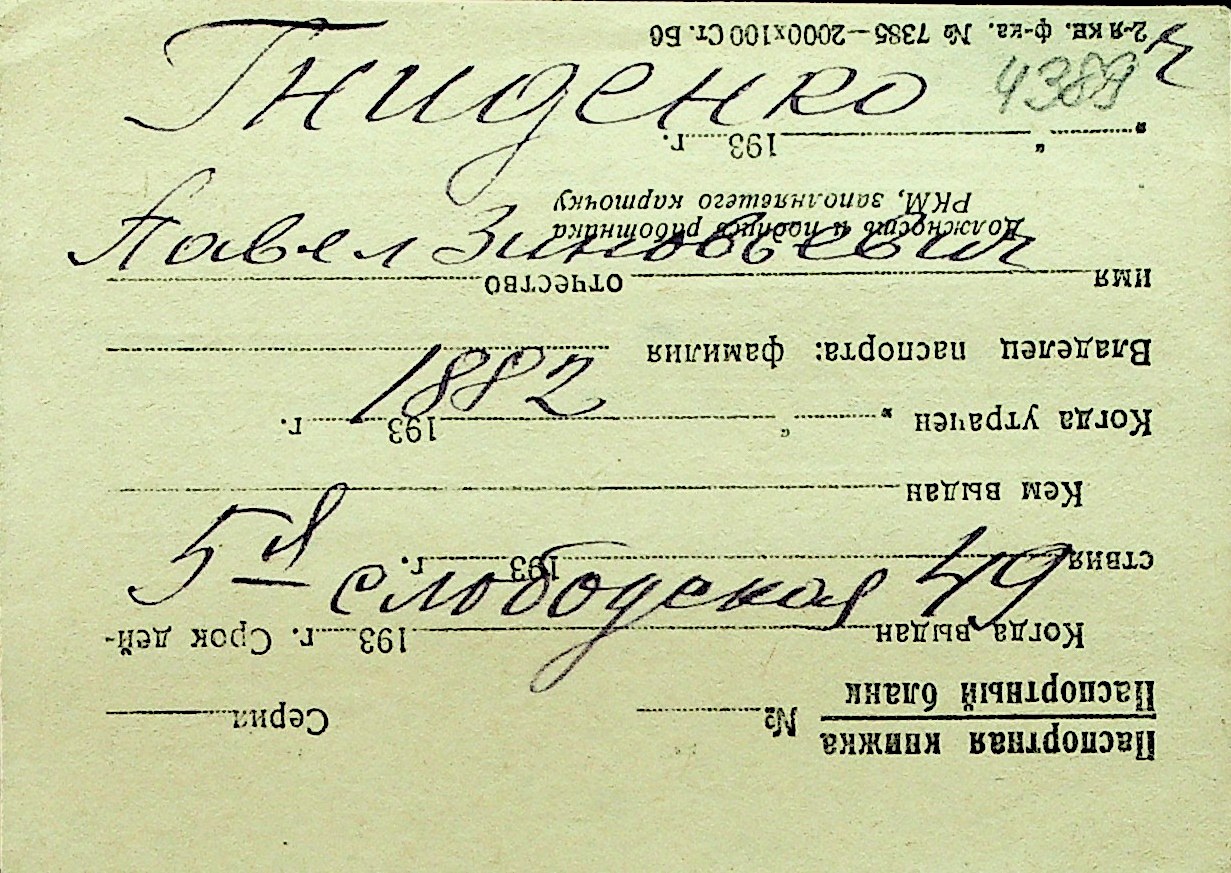 Гниденко
4389
Павел Зиновьевич
1882
5-я слободская 49
Паспортная книжка
Паспортный бланк
№ Серия
Когда выдан 193 г. Срок дей-
ствия 193 г.
Кем выдан
Когда утрачен „ “ 193 г.
Владелец паспорта: фамилия
имя отчество
Должность и подпись работника
РКМ, заполнявшего карточку
„ “ 193 г.
2-я кв. ф-ка. № 7385—2000х100 Ст. Б6